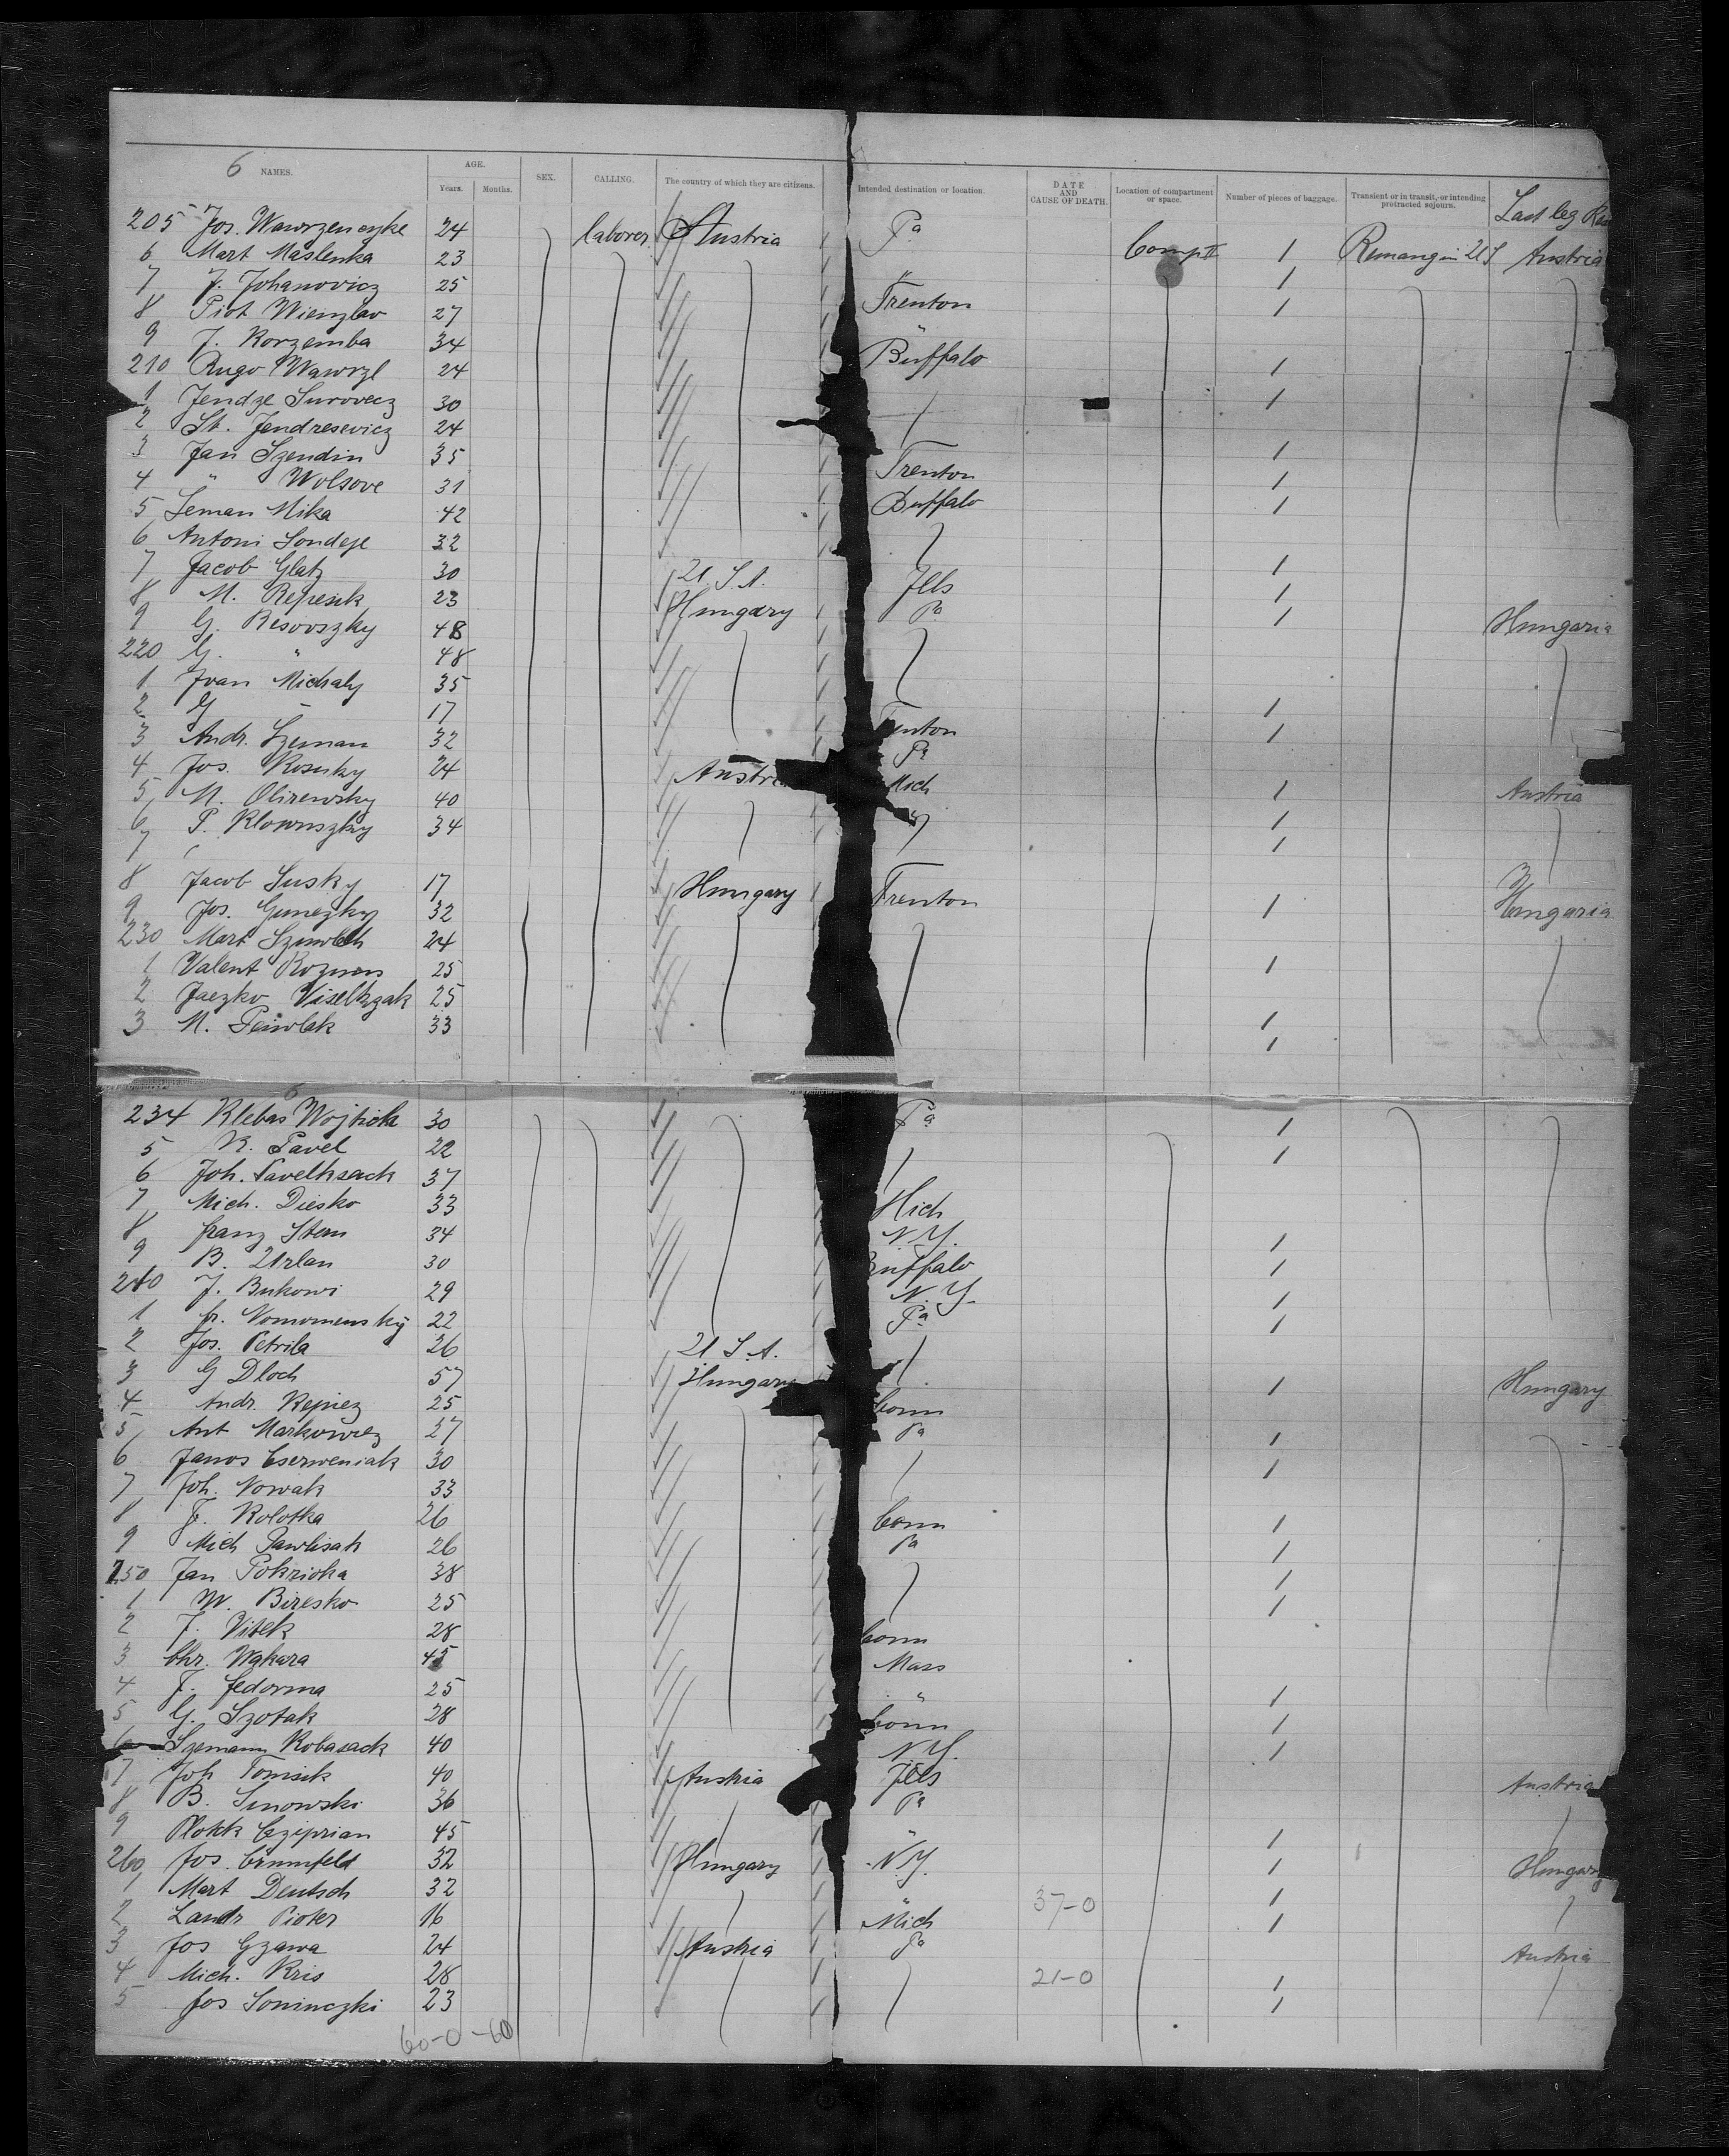 6 NAMES. AGE. Years. Months. SEX. CALLING. The country of which they are citizens. Intended destination or location. DATE AND CAUSE OF DEATH. Location of compartment or space. Number of pieces of baggage. Transient or in transit, or intending protracted sojourn. Last leg
205 Jos. Wawrzenczyke 24 laborer Austria Pa Comp II 1 Austria
6 Mart Maslenka 23 " 1
7 J. Johanovicz 25 Trenton 1
8 Piot Wienzlav 27 "
9 J. Korzemba 34 Buffalo 1
210 Wawrzl 24
1 Jendze Surovecz 30 1
2 St. Jendresevicz 24
3 Jan Szendin 35 Trenton 1
4 " Wolsove 31 Buffalo 1
5 Seman Mika 42 1
6 Antoni Sondeje 32
7 Jacob Glatz 30 U.S.A. Ills 1
8 M. Repesik 23 Hungary Pa 1
9 G. Resovszky 48 1 Hungaria
220 G. " 48
1 Ivan Michaly 35
2 G 17 1
3 Andr. Szeman 32 Pa 1
4 Jos. Kosuky 24 Austria Mich
5 M. Olirewsky 40 1 Austria
6 P. Klowuszky 34 1
7 1
8 Jacob Susky 17 Hungary Trenton
9 Jos. Gunezky 32 1 Hungaria
230 Mart 24
1 Valent 25 1
2 Jaczko 25
3 M. Pewlak 33 1
1
6
234 Klebas Wojticka 30 Pa 1
5 K. Pavel 22 1
6 Joh. Pavelksack 37
7 Mich. Diesko 33 Mich
8 Franz Stern 34 N.Y. 1
9 B. Urlan 30 Buffalo 1
240 J. Bukowi 29 N.Y. 1
1 22 Pa 1
2 Jos. Petrila 26 U.S.A.
3 G Dloch 57 Hungary 1 Hungary
4 Andr. Repiez 25 Conn
5 Ant Markowicz 27 Pa 1
6 Janos Cserweniak 30 1
7 Joh. Nowak 33
8 F. Kolotka 26 Conn 1
9 Mich Pawlisak 26 Pa 1
250 Jan Pokrioka 38 1
1 W. Biresko 25 1
2 J. Vitek 28 Conn
3 Chr. Wakara 45 Mass
4 F. Fedorma 25 " 1
5 G. Szotak 28 Conn 1
6 Szemann Kobasack 40 N.Y. 1
7 Joh Tomsik 40 Austria Ills Austria
8 B. Sinowski 36 Pa
9 Plokk Cziprian 45 " 1
260 Jos. Grunfeld 32 Hungary N.Y. 1 Hungary
1 Mart Deutsch 32 37-0 1
2 Landr Pioter 16 Mich 1
3 Jos Gzawa 24 Austria Pa Austria
4 Mich. Kris 28 21-0 1
5 Jos Soninczki 23 1
60-0-60